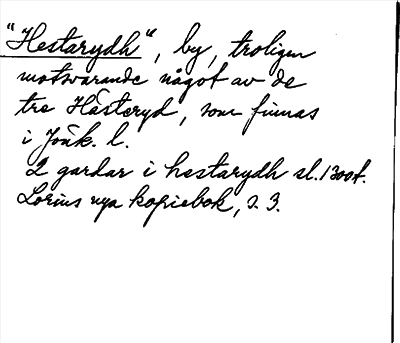 "Hestarydh", by, troligen
motsvarande något av de
tre Hästeryd, som finnas
i Jönk. l.
2 gardar i hestarydh sl. 1300t.
Lorins nya kopiebok, s. 3.